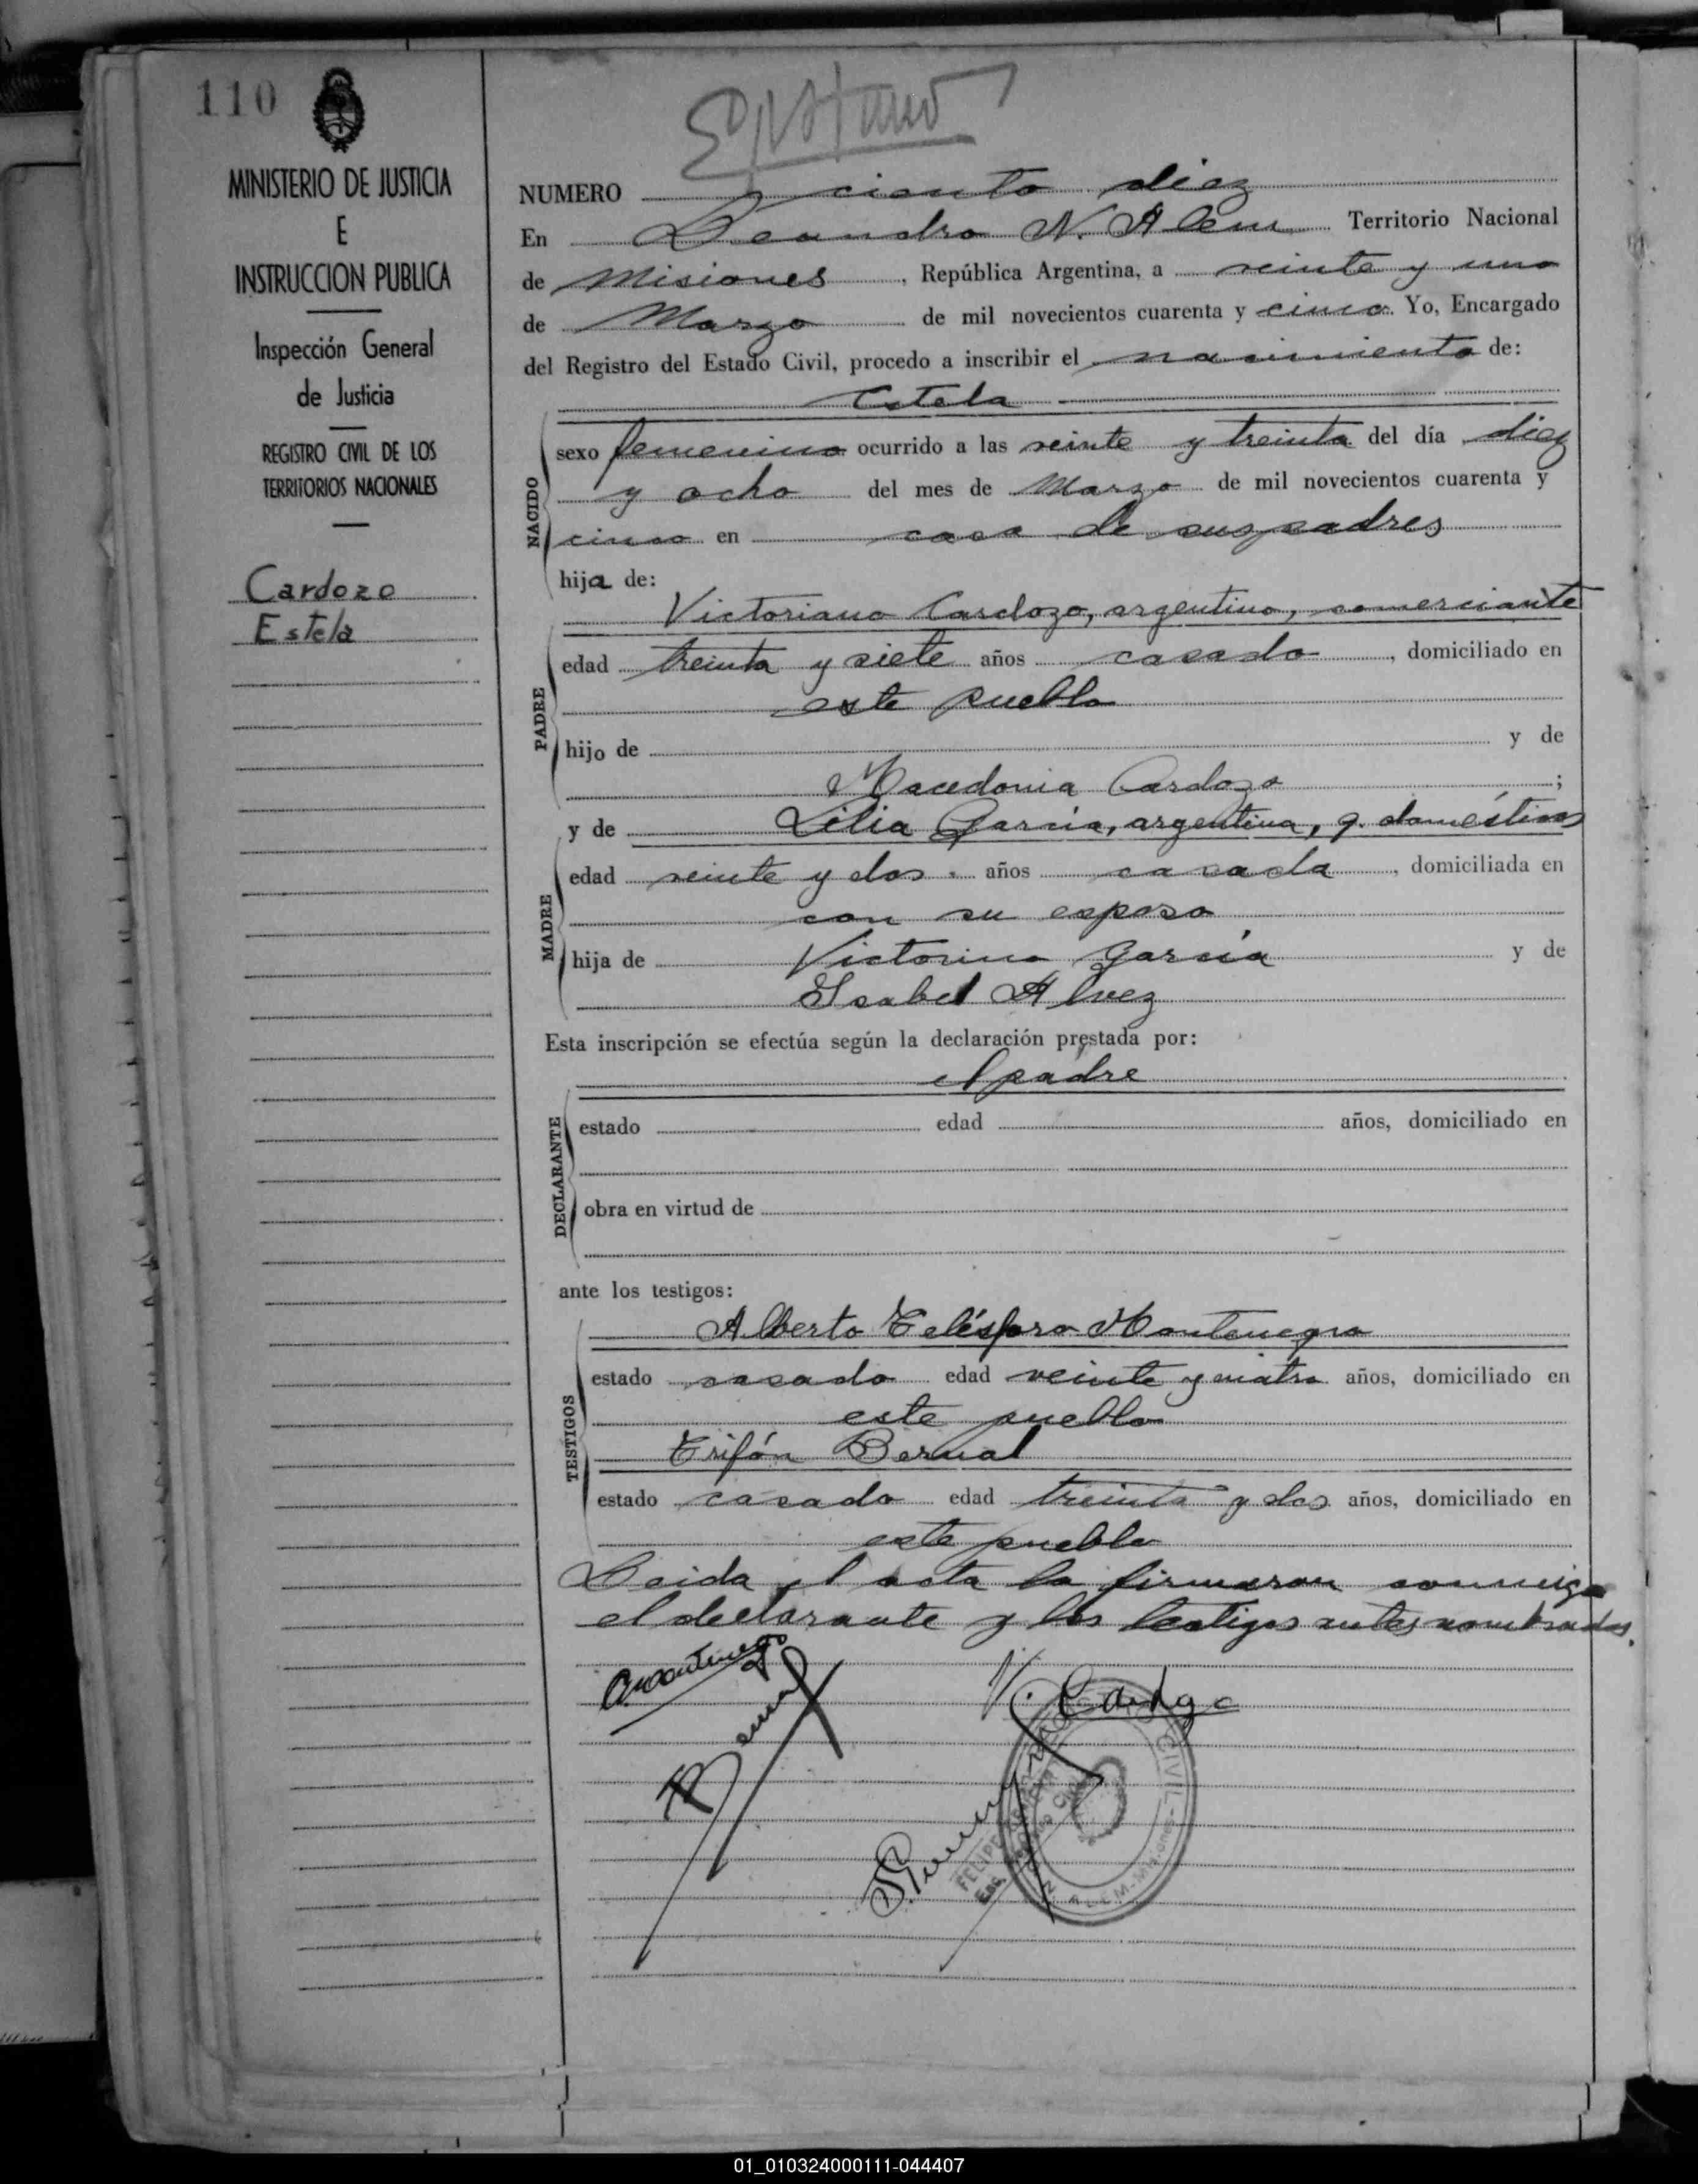 110
MINISTERIO DE JUSTICIA
E
INSTRUCCION PUBLICA
Inspección General
de Justicia
REGISTRO CIVIL DE LOS
TERRITORIOS NACIONALES
Cardozo
Estela
NUMERO ciento diez
En Leandro N. Alem Territorio Nacional
de Misiones, República Argentina, a veinte y uno
de Marzo de mil novecientos cuarenta y cinco. Yo, Encargado
del Registro del Estado Civil, procedo a inscribir el nacimiento de:
Estela
NACIDO
sexo femenino ocurrido a las veinte y treinta del día diez
y ocho del mes de Marzo de mil novecientos cuarenta y
cinco en casa de sus padres
hija de:
Victoriano Cardozo, argentino, comerciante
PADRE
edad treinta y siete años casado, domiciliado en
este pueblo
hijo de y de
Macedonia Cardozo;
y de Lilia García, argentina, q. domésticos
MADRE
edad veinte y dos. años casada, domiciliada en
con su esposo
hija de Victorino García y de
Isabel Alvez
Esta inscripción se efectúa según la declaración prestada por:
el padre
DECLARANTE
estado edad años, domiciliado en
obra en virtud de
ante los testigos:
Alberto Telésforo Montenegro
TESTIGOS
estado casado edad veinte y cuatro años, domiciliado en
este pueblo
Trifón Bernal
estado casado edad treinta y dos años, domiciliado en
este pueblo
Leida el acta la firmaron conmigo
el declarante y los testigos antes nombrados.
V. Cardozo
CIVIL
FELIPE
ALEM-Misiones
01_010324000111-044407